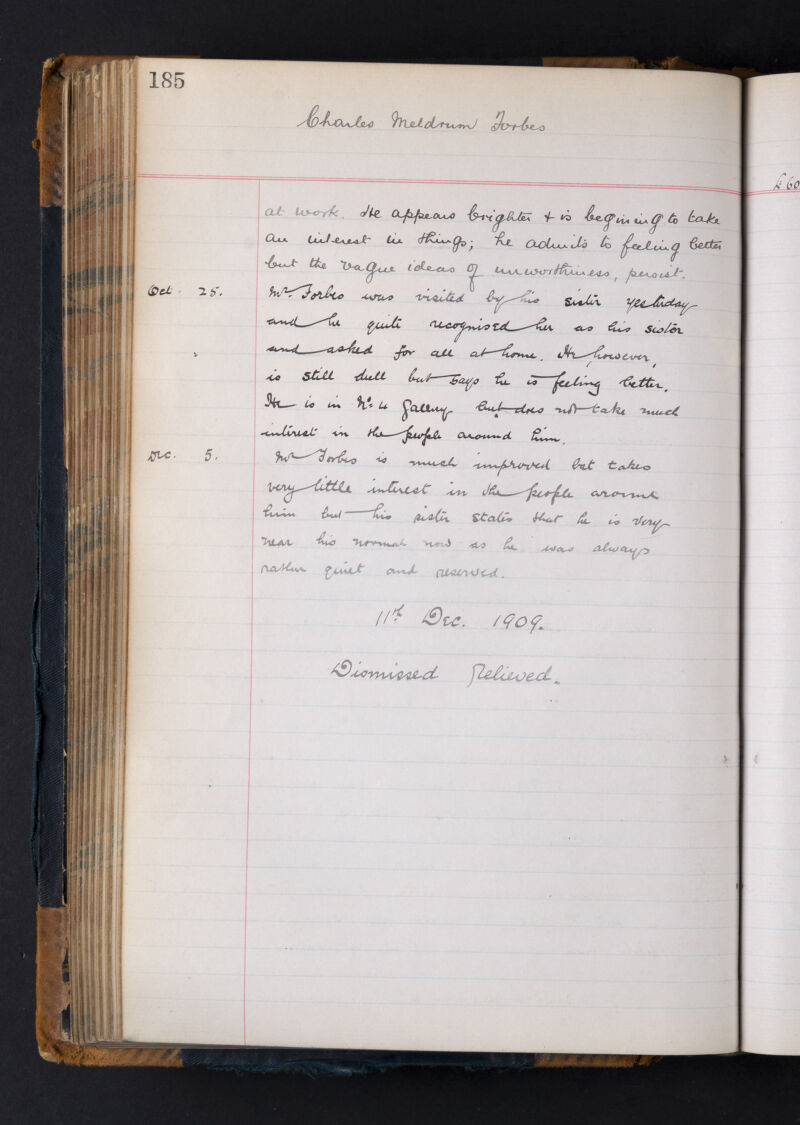 185
Charles Meldrum Forbes
£60
at work. He appears brighter & is begining to take
an interest in things; he admits to feeling better
but the vague ideas of unworthiness, persist.
Oct. 25. Mr. Forbes was visited by his sister yesterday
and he quite recognised her as his sister
and asked for all at home. He, however,
is still dull but says he is feeling better.
He is in No. 4 Gallery but does not take much
interest in the people around him.
Dec. 5. Mr Forbes is much improved but takes
very little interest in the people around
him but his sister states that he is very
near his normal now as he was always
rather quiet and reserved.
11th Dec. 1909.
Dismissed Relieved.